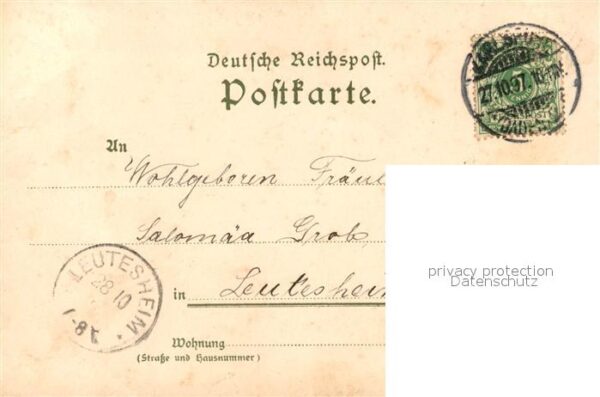 Deutsche Reichspost.
Postkarte.
27.10.97.
BADEN
An
Wohlgeboren Fräul
Salomäa Grob
in Leutesheim
LEUTESHEIM
28 10
privacy protection
Datenschutz
Wohnung
(Straße und Hausnummer)